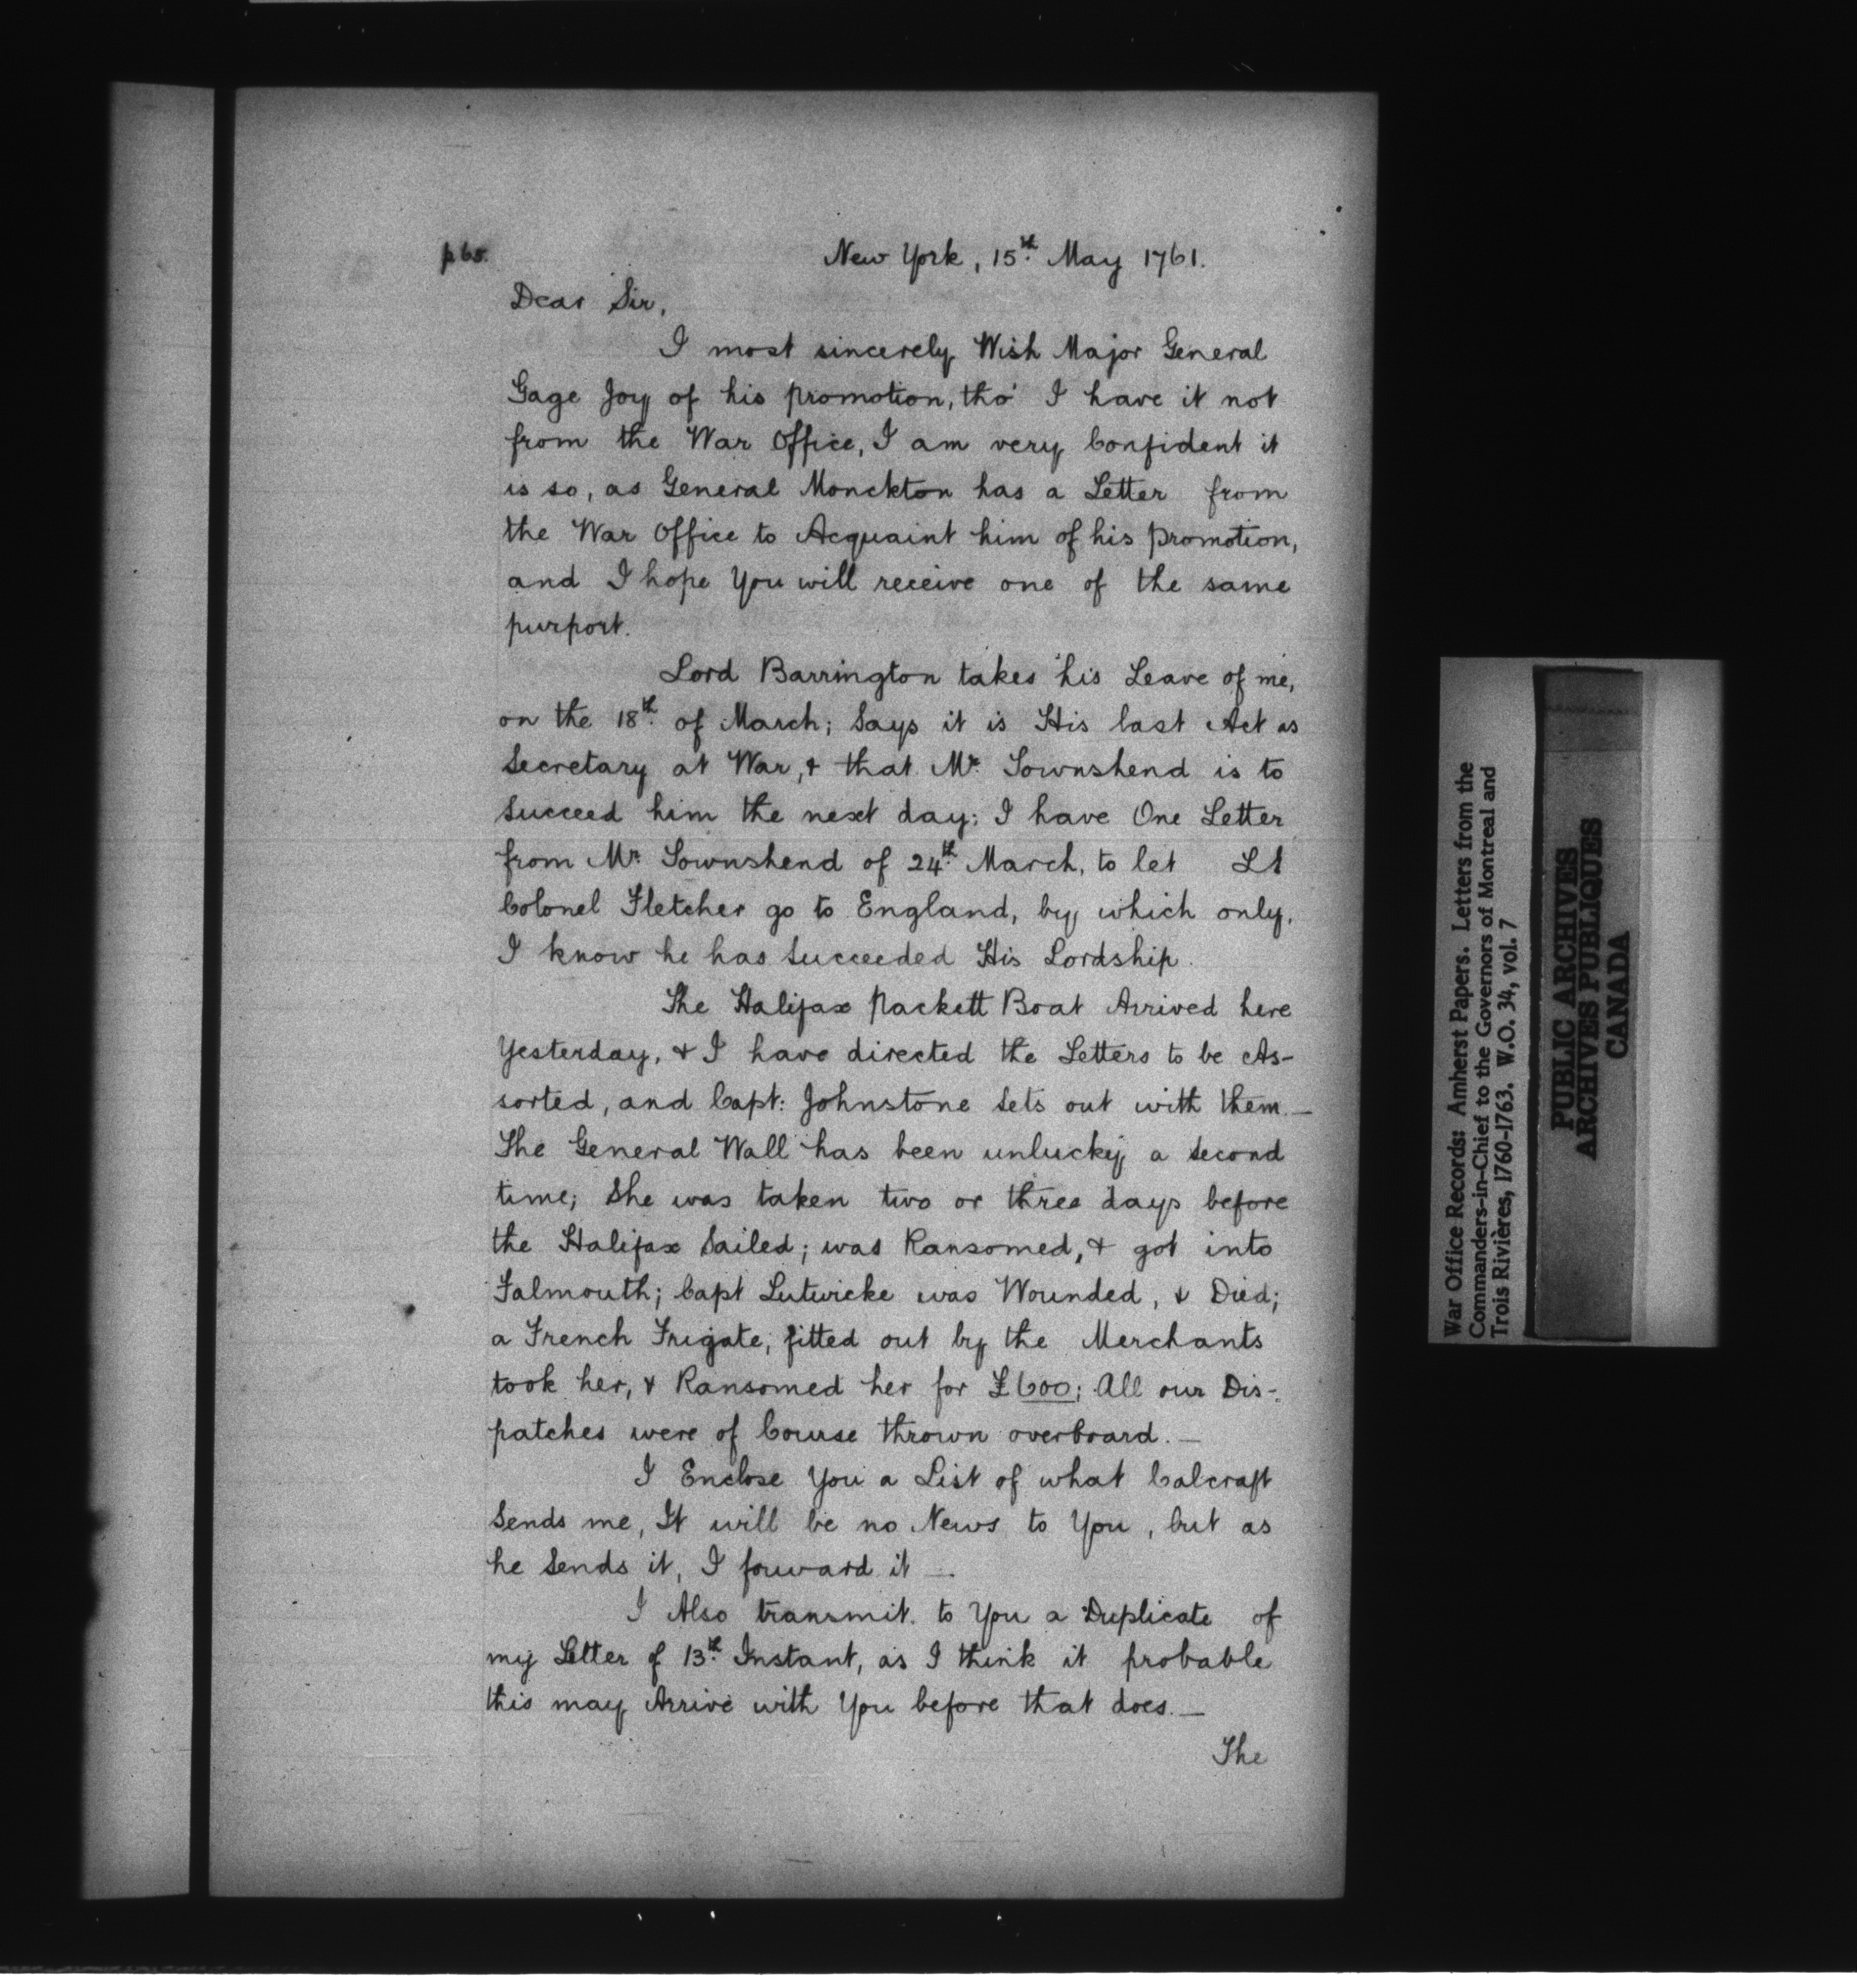 p 65.
New York, 15th. May 1761.
Dear Sir,
I most sincerely Wish Major General
Gage Joy of his promotion, tho' I have it not
from the War Office, I am very Confident it
is so, as General Monckton has a Letter from
the War Office to Acquaint him of his promotion,
and I hope You will receive one of the same
purport.
Lord Barrington takes his Leave of me,
on the 18th. of March; Says it is His last Act as
Secretary at War, & that Mr. Townshend is to
Succeed him the next day: I have One Letter
from Mr. Townshend of 24th. March, to let Lt
Colonel Fletcher go to England, by which only,
I know he has Succeeded His Lordship.
The Halifax Packett Boat Arrived here
Yesterday, & I have directed the Letters to be As-
sorted, and Capt: Johnstone Sets out with them.—
The General Wall has been unlucky a Second
time; She was taken two or three days before
the Halifax Sailed; was Ransomed, & got into
Falmouth; Capt Lutwicke was Wounded, & Died;
a French Frigate, fitted out by the Merchants
took her, & Ransomed her for £600; All our Dis-
patches were of Course thrown overboard.—
I Enclose You a List of what Calcraft
Sends me, It will be no News to You, but as
he Sends it, I forward it —.
I Also transmit to You a Duplicate of
my Letter of 13th. Instant, as I think it probable
this may Arrive with You before that does.—
The
War Office Records: Amherst Papers. Letters from the
Commanders-in-Chief to the Governors of Montreal and
Trois Rivières, 1760-1763. W.O. 34, vol. 7
PUBLIC ARCHIVES
ARCHIVES PUBLIQUES
CANADA